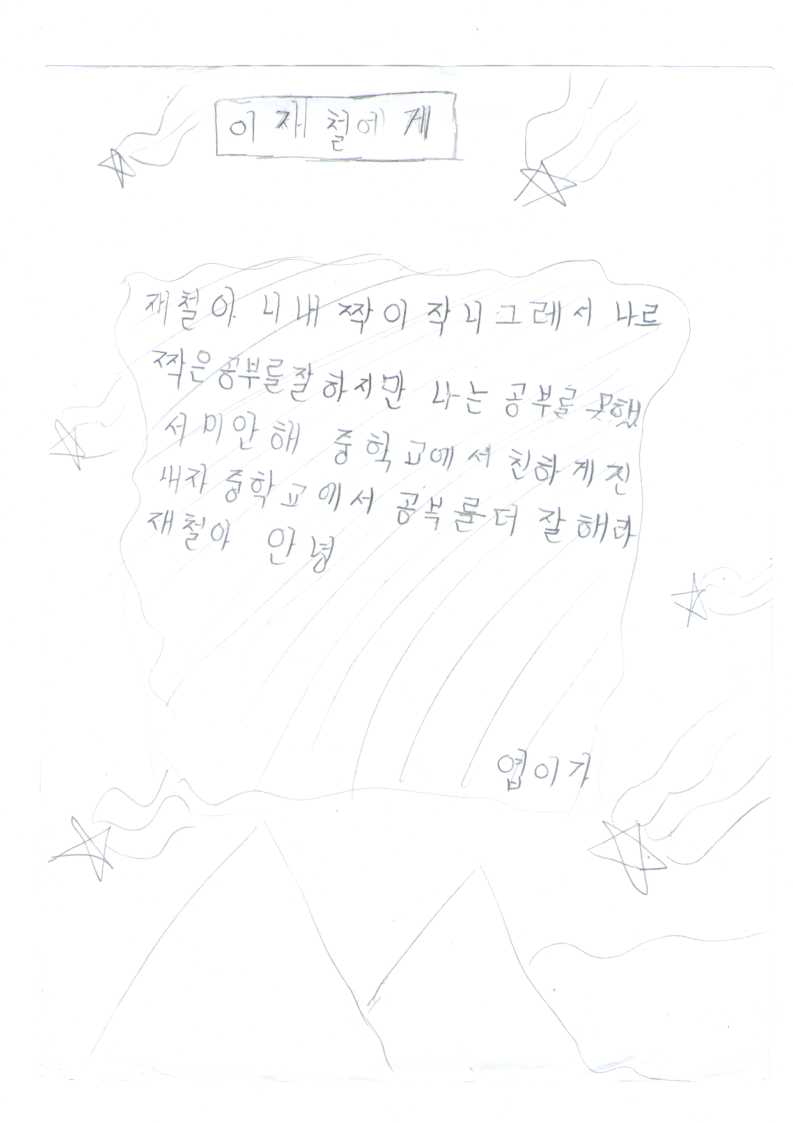 이재철에게
재철아 니 내 짝이 작니 그레서 나르
짝은 공부를 잘하지만 나는 공부를 못했
서 미안해 중학교에서 친하게 진
내자 중학교에서 공부를 더 잘해라
재철아 안녕
엽이가